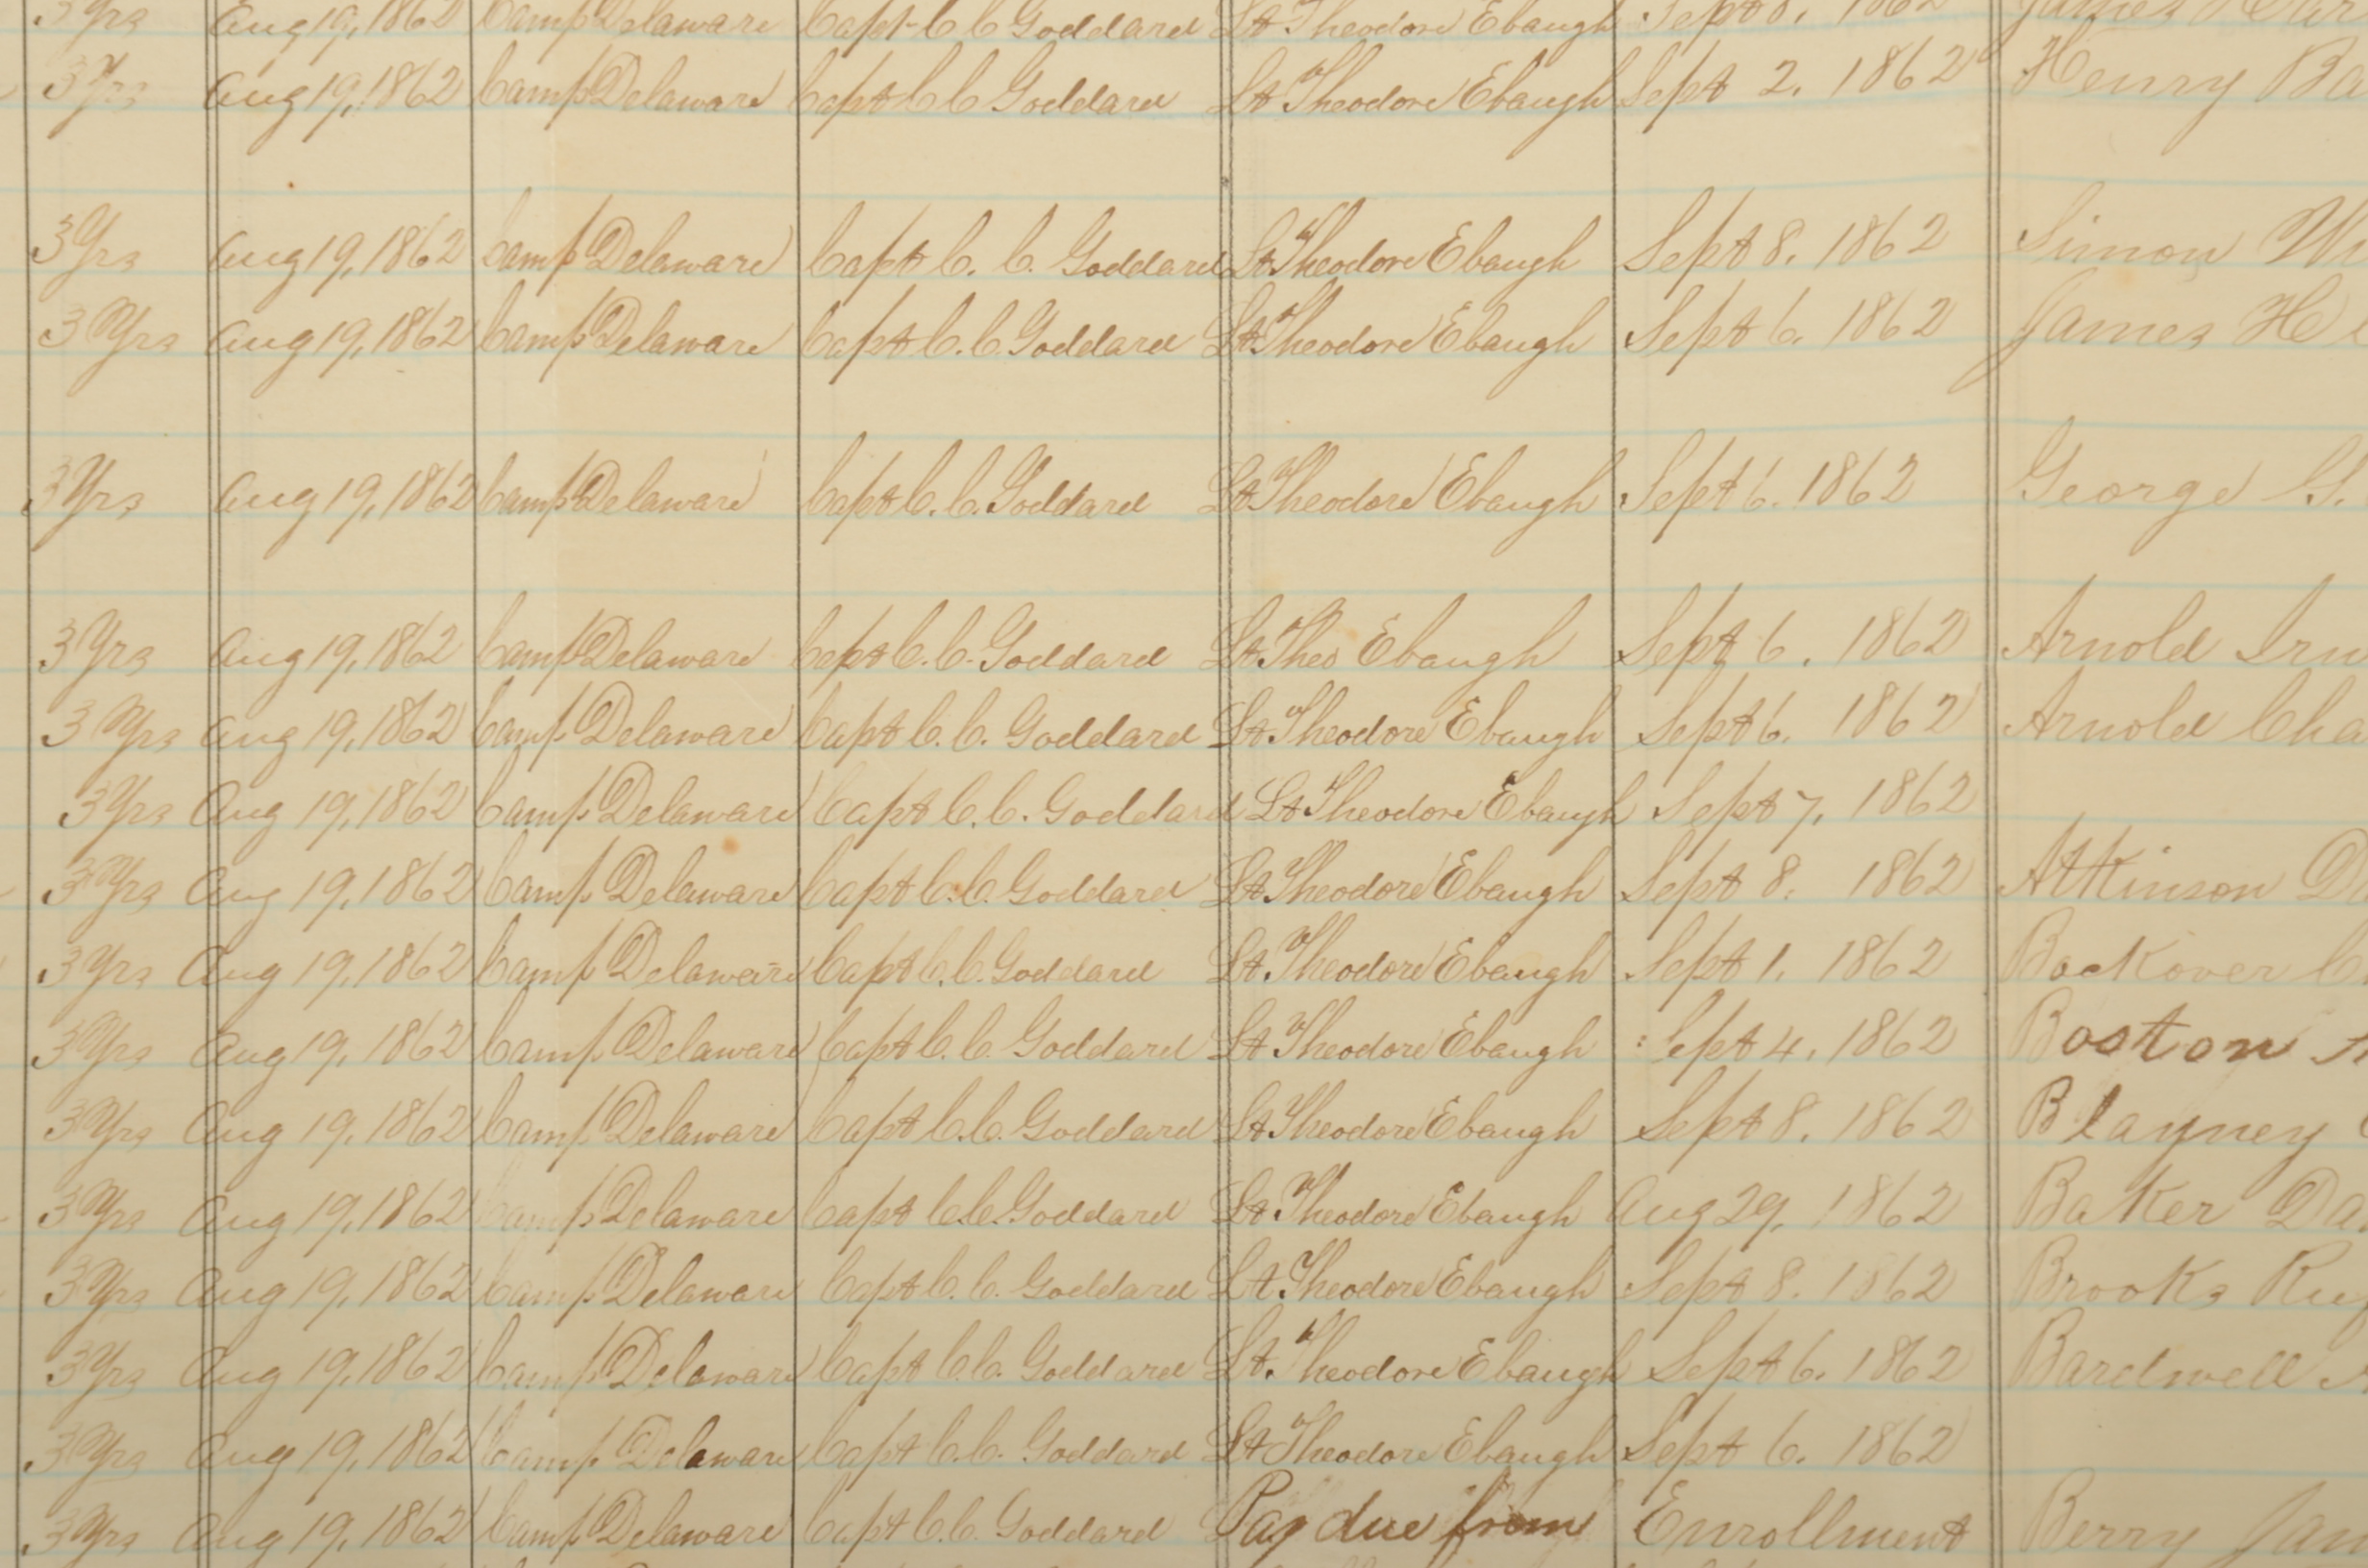 3 Yrs Aug 19, 1862 Camp Delaware Capt C C Goddard Lt Theodore Ebaugh Sept 8, 1862 James
3 Yrs Aug 19, 1862 Camp Delaware Capt C C Goddard Lt Theodore Ebaugh Sept 2. 1862 Henry Ba
3 Yrs Aug 19, 1862 Camp Delaware Capt C. C. Goddard Lt Theodore Ebaugh Sept 8. 1862 Simon
3 Yrs Aug 19, 1862 Camp Delaware Capt C. C. Goddard Lt Theodore Ebaugh Sept 6. 1862 James H
3 Yrs Aug 19, 1862 Camp Delaware Capt C. C. Goddard Lt Theodore Ebaugh Sept 6. 1862 George G.
3 Yrs Aug 19, 1862 Camp Delaware Capt C. C. Goddard Lt Theo Ebaugh Sept 6. 1862 Arnold Irw
3 Yrs Aug 19, 1862 Camp Delaware Capt C. C. Goddard Lt Theodore Ebaugh Sept 6. 1862 Arnold Cha
3 Yrs Aug 19, 1862 Camp Delaware Capt C. C. Goddard Lt Theodore Ebaugh Sept 7, 1862
3 Yrs Aug 19, 1862 Camp Delaware Capt C. C. Goddard Lt Theodore Ebaugh Sept 8. 1862 Atkinson Da
3 Yrs Aug 19, 1862 Camp Delaware Capt C. C. Goddard Lt Theodore Ebaugh Sept 1. 1862 Backover
3 Yrs Aug 19, 1862 Camp Delaware Capt C. C. Goddard Lt Theodore Ebaugh Sept 4, 1862 Boston
3 Yrs Aug 19, 1862 Camp Delaware Capt C. C. Goddard Lt Theodore Ebaugh Sept 8, 1862 Blayney
3 Yrs Aug 19, 1862 Camp Delaware Capt C. C. Goddard Lt Theodore Ebaugh Aug 29, 1862 Baker Da
3 Yrs Aug 19, 1862 Camp Delaware Capt C. C. Goddard Lt Theodore Ebaugh Sept 8. 1862 Brooks Ruf
3 Yrs Aug 19, 1862 Camp Delaware Capt C. C. Goddard Lt. Theodore Ebaugh Sept 6. 1862 Bardwell
3 Yrs Aug 19, 1862 Camp Delaware Capt C. C. Goddard Lt Theodore Ebaugh Sept 6. 1862
3 Yrs Aug 19, 1862 Camp Delaware Capt C. C. Goddard Pay due from Enrollment Berry Jam